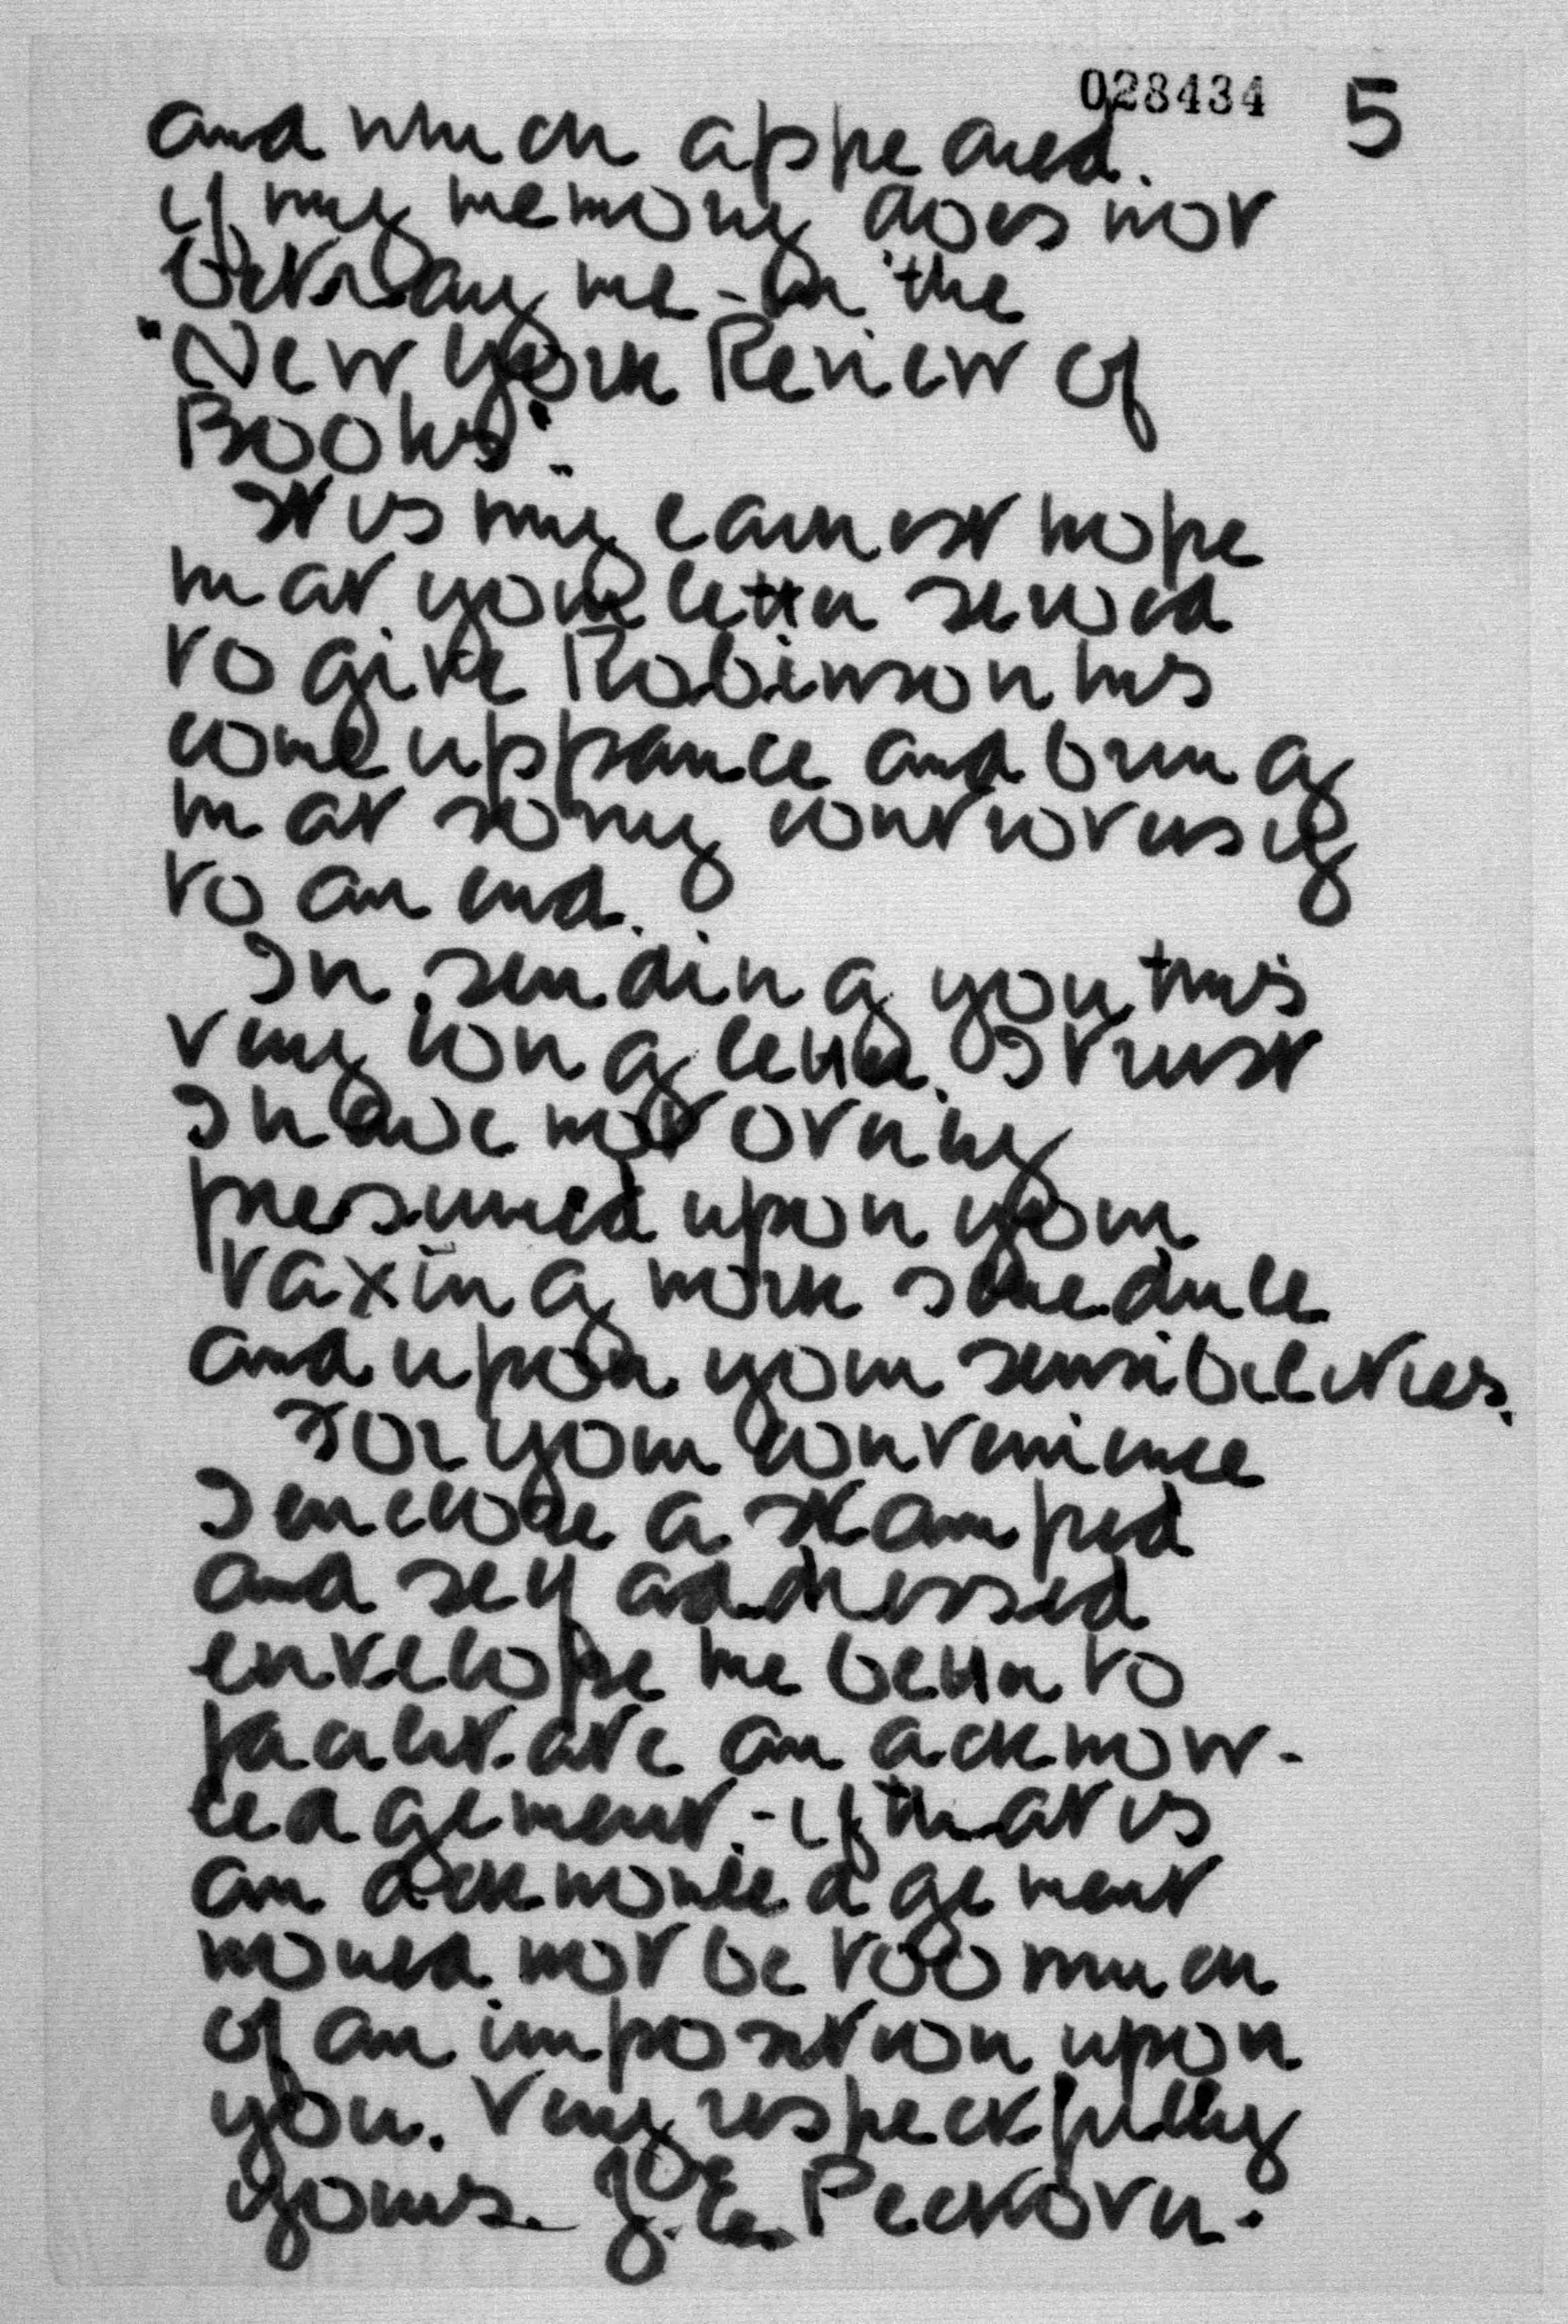 028434 5
and which appeared.
if my memory does not
betray me - in the
"New York Review of
Books".
It is my earnest hope
that your letter served
to give Robinson his
come uppance and bring
that sorry controversy
to an end.
In sending you this
very long letter. I trust
I have not overly
presumed upon your
taxing work schedule
and upon your sensibilities.
For your convenience
I enclose a stamped
and self addressed
envelope the better to
facilitate an acknow-
ledgement. - if that is
an acknowledgement
would not be too much
of an imposition upon
you. Very respectfully
yours. J. E.